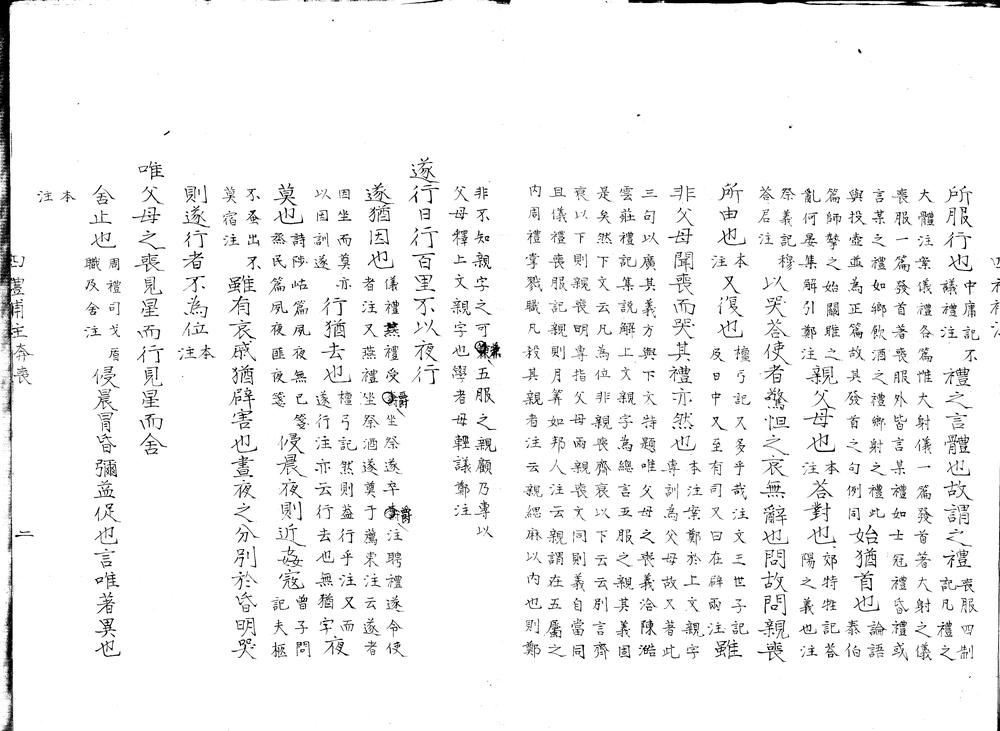 所服行也中庸記不議禮注禮之言體也故謂之禮喪服四制記凡禮之
大體注案儀禮各篇惟大射儀一篇發首著大射之儀
喪服一篇發首著喪服外皆言某禮如士冠禮昏禮或
言某之禮如鄉飲酒之禮鄉射之禮此與投壺並為正篇故其發首之句例同始猶首也論語泰伯
篇師摯之始關雎之亂何晏集解引鄭注親父母也本注答對也郊特牲記答陽之義也注
祭義記穆答君注以哭答使者驚怛之哀無辭也問故問親喪
所由也本注又復也檀弓記又多乎哉注文王世子記反日中又至有司又曰在辟兩注雖
非父母聞喪而哭其禮亦然也本注案鄭於上文親字專訓為父母故又著此
三句以廣其義方與下文特題唯父母之喪義洽陳澔
雲莊禮記集說解上文親字為總言五服之親其義固
是矣然下文云凡為位非親喪齊衰以下云云別言齊
衰以下則親喪明專指父母兩親喪文同則義自當同
且儀禮喪服記親則月算如邦人注云親謂在五屬之
內周禮掌戮職凡殺其親者注云親緦麻以內也則鄭
非不知親字之可兼五服之親顧乃專以
父母釋上文親字也學者毋輕議鄭注
遂行日行百里不以夜行
遂猶因也儀禮燕禮受爵坐祭遂卒爵注聘禮遂令使者注又燕禮坐祭酒遂奠于薦東注云遂者
因坐而奠亦以因訓遂行猶去也檀弓記然則盍行乎注又而遂行注亦云行去也無猶字夜
莫也詩陟岵篇夙夜無已箋烝民篇夙夜匪夜箋侵晨夜則近姦寇曾子問記夫柩
不蚤出不莫宿注雖有哀戚猶辟害也晝夜之分別於昏明哭
則遂行者不為位本注
唯父母之喪見星而行見星而舍
舍止也周禮司戈盾職及舍注侵晨冒昏彌益促也言唯著異也
本注
奔喪
二